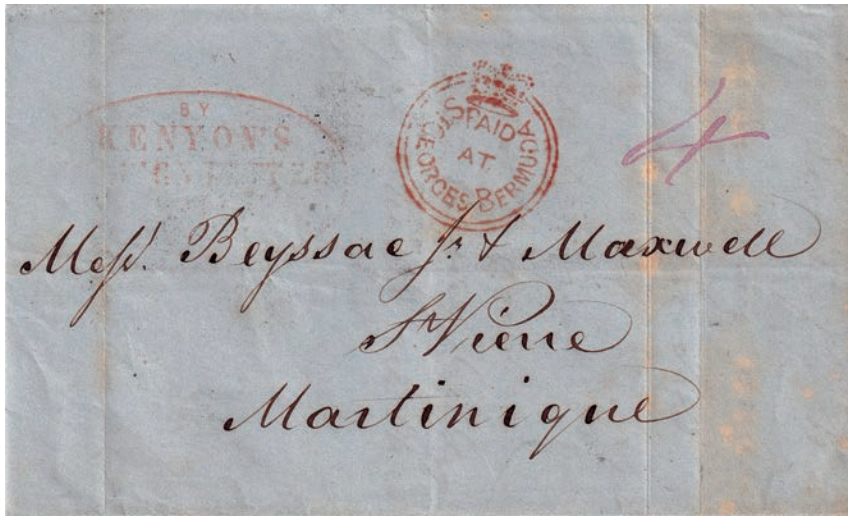 BY
KENYON'S
ST GEORGES BERMUDA
PAID
AT
4
Messrs. Beyssac Jr & Maxwell
St Pierre
Martinique